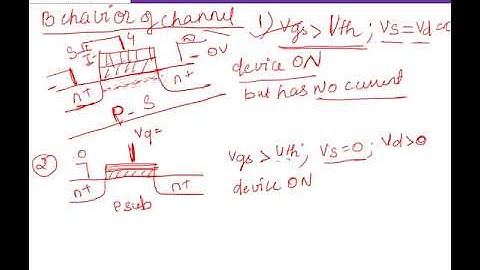 Behavior of channel
1) Vgs > Vth ; Vs = Vd = 0
device ON
but has No current
S
0V
n+
n+
P - S
Vg =
2
0
Vgs > Vth ; Vs = 0 ; Vd > 0
device ON
n+
n+
Psub